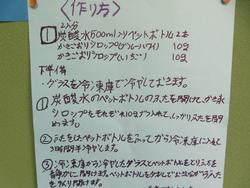 〈作り方〉
2人分
1 炭酸水(500ml)ペットボトル 2本
かきごおりシロップ(ブルーハワイ) 10g
かきごおりシロップ(いちご) 10g
下準備
・グラスを冷凍庫で冷やしておきます。
① 炭酸水のペットボトルのふたを開けて、かき氷
シロップをそれぞれ
れて、しっかりふたを閉
めます。
② ふたをしたペットボトルを
ふってから冷凍庫に入れ
3時間半冷やします。
③ 冷凍庫から冷やしたグラスとペットボトルをとり
静かに開けます。ペットボトルを